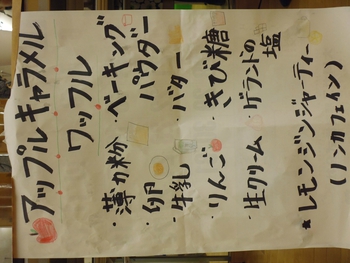 アップルキャラメル
ワッフル
・薄力粉
・ベーキングパウダー
・卵
・牛乳
・バター
・りんご
・きび糖
・生クリーム
・ゲランドの塩
★レモンジンジャーティー
(ノンカフェイン)